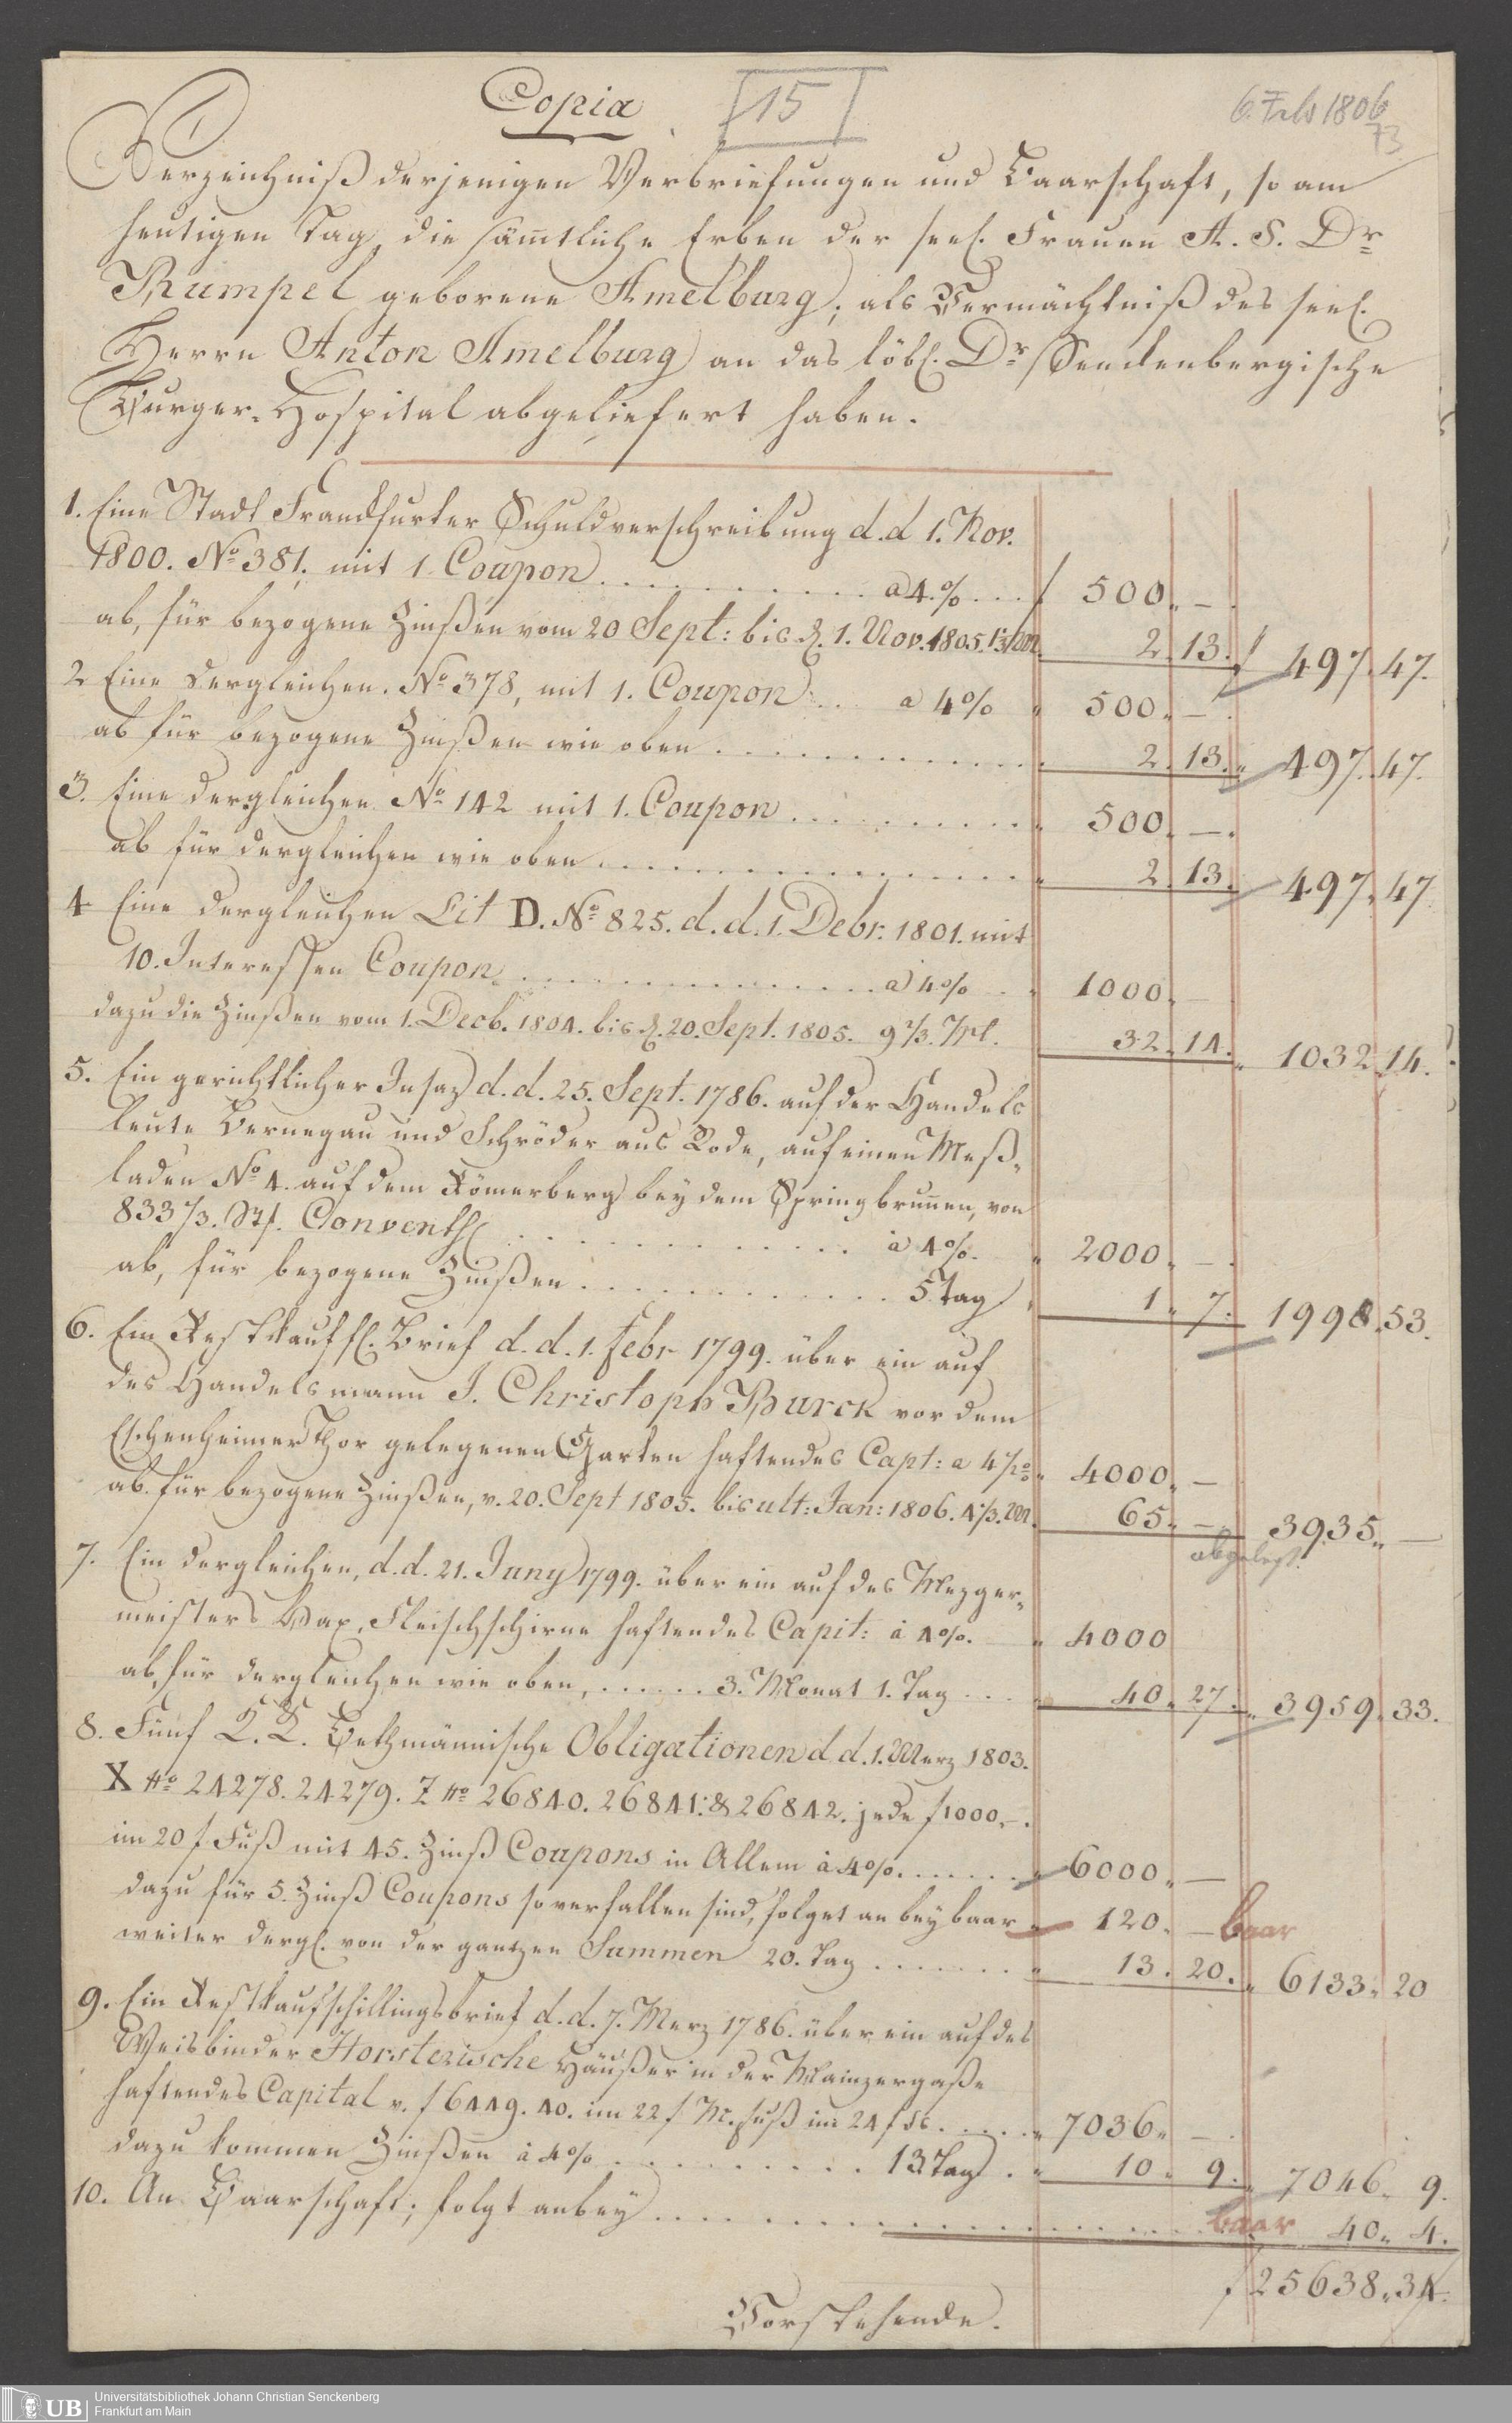 Copia
[15]
6. Feb 1806
73
Verzeichniß derjenigen Verbriefungen und Baarschaft, so am
heutigen Tag die sämtliche Erben der seel. Frauen A. S. Dr
Rumpel geborene Amelburg, als Vermächtniß des seel.
Herrn Anton Amelburg an das löbl. Dr Senckenbergische
Burger-Hospital abgeliefert haben.
1. Eine Stadt Franckfurter Schuldverschreibung d.d 1. Nov.
1800. No 381. mit 1 Coupon . . . a 4.% . . . f 500. —.
ab, für bezogene Zinßen vom 20 Sept: bis d. 1. Nov. 1805. 1⅓ M 2. 13. f 497. 47.
2 Eine dergleichen. No 378, mit 1. Coupon . . . a 4% " 500. —.
ab für bezogene Zinßen wie oben . . . 2. 13. " 497. 47.
3. Eine dergleichen No 142 mit 1. Coupon . . . " 500. —.
ab für dergleichen wie oben . . . " 2. 13. 497. 47
4 Eine dergleichen Lit D. No 825. d. d. 1. Debr. 1801. mit
10. Interessen Coupon . . . a 4% . . " 1000. —
dazu die Zinßen vom 1. Decb. 1804. bis d. 20. Sept. 1805. 9⅔. Mt. 32. 14. " 1032. 14.
5. Ein gerichtlicher Insaz d. d. 25. Sept. 1786. auf der Handels
leute Bernegau und Schröder aus Rode, auf einen Meß-
laden No 4. auf dem Römerberg bey dem Springbrunnen, von
833⅓. Convents . . . à 4%. " 2000. —.
ab, für bezogene Zinßen . . . 5 Tag 1. 7. 1998. 53.
6. Ein Restkaufsch. Brief d. d. 1. Febr 1799. über ein auf
des Handelsmann J. Christoph Burck vor dem
Eschenheimer Thor gelegenen Garten haftendes Capt: a 4 p% 4000. —
ab für bezogene Zinßen, v. 20. Sept 1805. bis ult: Jan: 1806. 4⅓. M. 65. — 3935. —
abgelegt.
7. Ein dergleichen, d. d. 21. Juny 1799. über ein auf des Mezger-
meisters Bax, Fleischschirne haftendes Capit: à 4%. " 4000
ab, für dergleichen wie oben, . . . 3. Monat 1. Tag . . . 40. 27. " 3959. 33.
8. Fünf K. K. Bethmännische Obligationen d d. 1. Merz 1803.
X No 24278. 24279. Z No 26840. 26841. & 26842. jede f 1000.—.
im 20 f Fuß mit 45. Zinß Coupons in Allem à 4%. . . . 6000. —
dazu für 5. Zinß Coupons so verfallen sind, folget anbey baar 120. — baar
weiter dergl. von der gantzen Summen 20. Tag . . . " 13. 20. " 6133. 20
9. Ein Restkaufschillingsbrief d. d. 7. Merz 1786. über ein auf des
Weisbinder Horsterische Häußer in der Mainzergaße
haftendes Capital v. f 6449. 40. im 22 f M. fuß im 24 f . . . " 7036. —.
dazu kommen Zinßen à 4% . . . 13 Tag . " 10. 9. " 7046. 9.
10. An Baarschaft, folgt anbey . . . baar 40. 4.
f 25638. 34.
Vorstehende.
UB Universitätsbibliothek Johann Christian Senckenberg
Frankfurt am Main